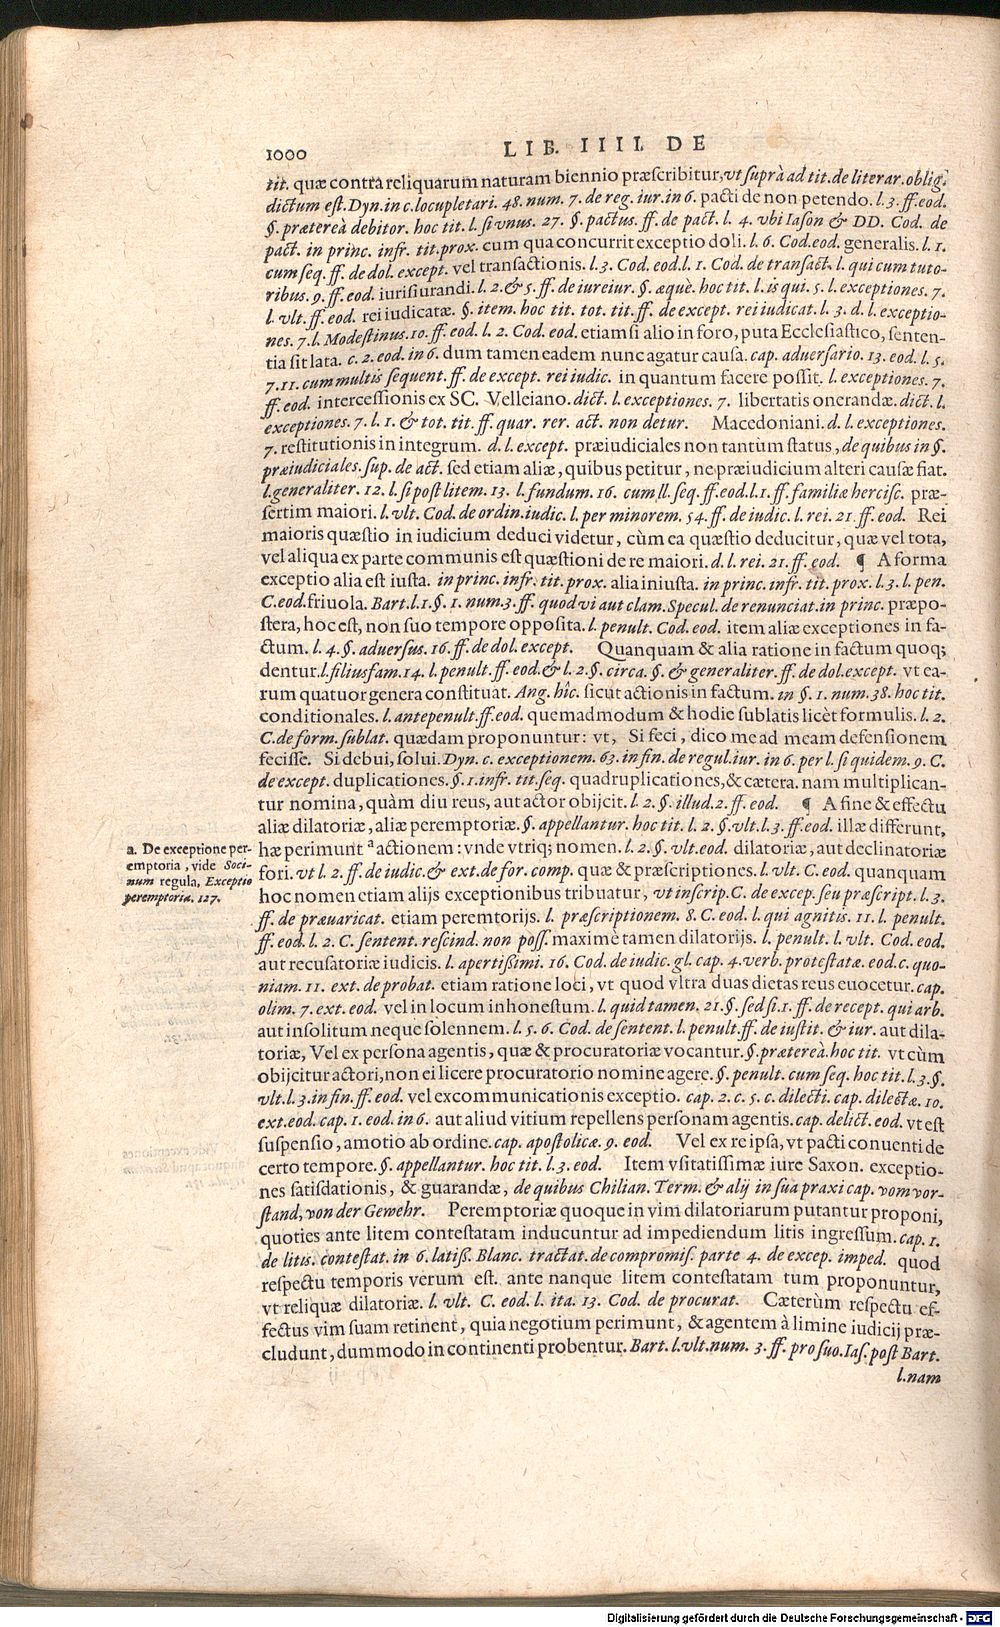 1000
LIB. IIII. DE
tit. quæ contra reliquarum naturam biennio præscribitur, vt suprà ad tit. de literar. oblig.
dictum est. Dyn. in c. locupletari. 48. num. 7. de reg. iur. in 6. pacti de non petendo. l. 3. ff. eod.
§. prætereà debitor. hoc tit. l. si vnus. 27. §. pactus. ff. de pact. l. 4. vbi Iason & DD. Cod. de
pact. in princ. infr. tit. prox. cum qua concurrit exceptio doli. l. 6. Cod. eod. generalis. l. 1.
cum seq. ff. de dol. except. vel transactionis. l. 3. Cod. eod. l. 1. Cod. de transact. l. qui cum tuto-
ribus. 9. ff. eod. iurisiurandi. l. 2. & 5. ff. de iureiur. §. æquè. hoc tit. l. is qui. 5. l. exceptiones. 7.
l. vlt. ff. eod. rei iudicatæ. §. item. hoc tit. tot. tit. ff. de except. rei iudicat. l. 3. d. l. exceptio-
nes. 7. l. Modestinus. 10. ff. eod. l. 2. Cod. eod. etiamsi alio in foro, puta Ecclesiastico, senten-
tia sit lata. c. 2. eod. in 6. dum tamen eadem nunc agatur causa. cap. aduersario. 13. eod. l. 5.
7. 11. cum multis sequent. ff. de except. rei iudic. in quantum facere possit. l. exceptiones. 7.
ff. eod. intercessionis ex SC. Velleiano. dict. l. exceptiones. 7. libertatis onerandæ. dict. l.
exceptiones. 7. l. 1. & tot. tit. ff. quar. rer. act. non detur. Macedoniani. d. l. exceptiones.
7. restitutionis in integrum. d. l. except. præiudiciales non tantùm status, de quibus in §.
præiudiciales. sup. de act. sed etiam aliæ, quibus petitur, ne præiudicium alteri causæ fiat.
l. generaliter. 12. l. si post litem. 13. l. fundum. 16. cum ll. seq. ff. eod. l. 1. ff. familiæ hercisc. præ-
sertim maiori. l. vlt. Cod. de ordin. iudic. l. per minorem. 54. ff. de iudic. l. rei. 21. ff. eod. Rei
maioris quæstio in iudicium deduci videtur, cùm ea quæstio deducitur, quæ vel tota,
vel aliqua ex parte communis est quæstioni de re maiori. d. l. rei. 21. ff. eod. ¶ A forma
exceptio alia est iusta. in princ. infr. tit. prox. alia iniusta. in princ. infr. tit. prox. l. 3. l. pen.
C. eod. friuola. Bart. l. 1. §. 1. num. 3. ff. quod vi aut clam. Specul. de renunciat. in princ. præpo-
stera, hoc est, non suo tempore opposita. l. penult. Cod. eod. item aliæ exceptiones in fa-
ctum. l. 4. §. aduersus. 16. ff. de dol. except. Quanquam & alia ratione in factum quoq;
dentur. l. filiusfam. 14. l. penult. ff. eod. & l. 2. §. circa. §. & generaliter. ff. de dol. except. vt ea-
rum quatuor genera constituat. Ang. hîc. sicut actionis in factum. in §. 1. num. 38. hoc tit.
conditionales. l. antepenult. ff. eod. quemadmodum & hodie sublatis licèt formulis. l. 2.
C. de form. sublat. quædam proponuntur: vt, Si feci, dico me ad meam defensionem
fecisse. Si debui, solui. Dyn. c. exceptionem. 63. in fin. de regul. iur. in 6. per l. si quidem. 9. C.
de except. duplicationes. §. 1. infr. tit. seq. quadruplicationes, & cætera. nam multiplican-
tur nomina, quàm diu reus, aut actor obijcit. l. 2. §. illud. 2. ff. eod. ¶ A fine & effectu
aliæ dilatoriæ, aliæ peremptoriæ. §. appellantur. hoc tit. l. 2. §. vlt. l. 3. ff. eod. illæ differunt,
hæ perimunt ᵃ actionem: vnde vtriq; nomen. l. 2. §. vlt. eod. dilatoriæ, aut declinatoriæ
fori. vt l. 2. ff. de iudic. & ext. de for. comp. quæ & præscriptiones. l. vlt. C. eod. quanquam
hoc nomen etiam alijs exceptionibus tribuatur, vt inscrip. C. de excep. seu præscript. l. 3.
ff. de præuaricat. etiam peremtorijs. l. præscriptionem. 8. C. eod. l. qui agnitis. 11. l. penult.
ff. eod. l. 2. C. sentent. rescind. non poss. maximè tamen dilatorijs. l. penult. l. vlt. Cod. eod.
aut recusatoriæ iudicis. l. apertißimi. 16. Cod. de iudic. gl. cap. 4. verb. protestatæ. eod. c. quo-
niam. 11. ext. de probat. etiam ratione loci, vt quod vltra duas dietas reus euocetur. cap.
olim. 7. ext. eod. vel in locum inhonestum. l. quid tamen. 21. §. sed si. 1. ff. de recept. qui arb.
aut insolitum neque solennem. l. 5. 6. Cod. de sentent. l. penult. ff. de iustit. & iur. aut dila-
toriæ, Vel ex persona agentis, quæ & procuratoriæ vocantur. §. prætereà. hoc tit. vt cùm
obijcitur actori, non ei licere procuratorio nomine agere. §. penult. cum seq. hoc tit. l. 3. §.
vlt. l. 3. in fin. ff. eod. vel excommunicationis exceptio. cap. 2. c. 5. c. dilecti. cap. dilectæ. 10.
ext. eod. cap. 1. eod. in 6. aut aliud vitium repellens personam agentis. cap. delict. eod. vt est
suspensio, amotio ab ordine. cap. apostolicæ. 9. eod. Vel ex re ipsa, vt pacti conuenti de
certo tempore. §. appellantur. hoc tit. l. 3. eod. Item vsitatissimæ iure Saxon. exceptio-
nes satisdationis, & guarandæ, de quibus Chilian. Term. & alij in sua praxi cap. vom vor-
stand, von der Gewehr. Peremptoriæ quoque in vim dilatoriarum putantur proponi,
quoties ante litem contestatam inducuntur ad impediendum litis ingressum. cap. 1.
de litis. contestat. in 6. latiß. Blanc. tractat. de compromis. parte 4. de excep. imped. quod
respectu temporis verum est. ante nanque litem contestatam tum proponuntur,
vt reliquæ dilatoriæ. l. vlt. C. eod. l. ita. 13. Cod. de procurat. Cæterùm respectu ef-
fectus vim suam retinent, quia negotium perimunt, & agentem à limine iudicij præ-
cludunt, dummodo in continenti probentur. Bart. l. vlt. num. 3. ff. pro suo. Ias. post Bart.
l. nam
a. De exceptione per-
emptoria, vide Soci-
num regula, Exceptio
peremptoria. 127.
Digitalisierung gefördert durch die Deutsche Forschungsgemeinschaft - DFG